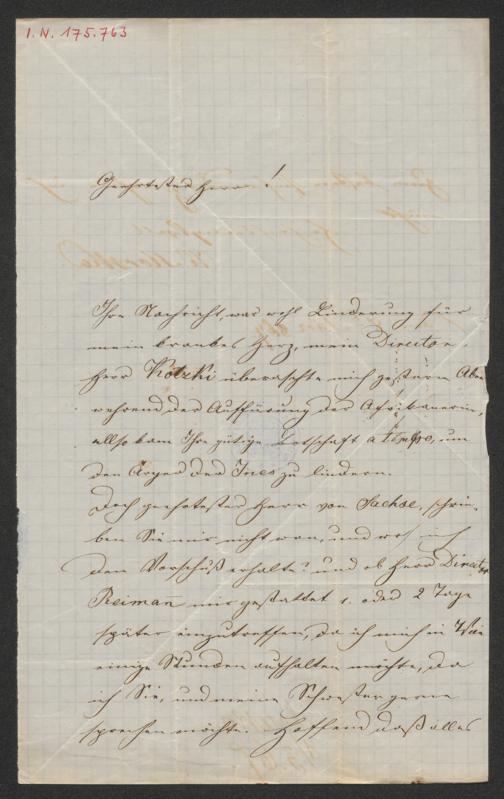 I. N. 175.763
Geehrtester Herr!
Ihre Nachricht, war wohl Linderung für
mein krankes Herz, mein Director,
Herr Kotzki überaschte mich gestern Aben
wehrend der Aufführung der Afrikanerin,
allso kam Ihre gütige Botschaft a tempo, um
den Ärger der Ines zu lindern.
Doch geehrtester Herr von Sachse, schrie-
ben Sie mir nicht wan, und wo ich
den Vorschuß erhalte? und ob Herr Director
Reimann mir gestattet 1. oder 2 Tage
später einzutreffen, da ich mich in Wien
einige Stunden aufhalten möchte, da
ich Sie, und meine Schwester gerne
sprechen möchte. Hoffend daß alles